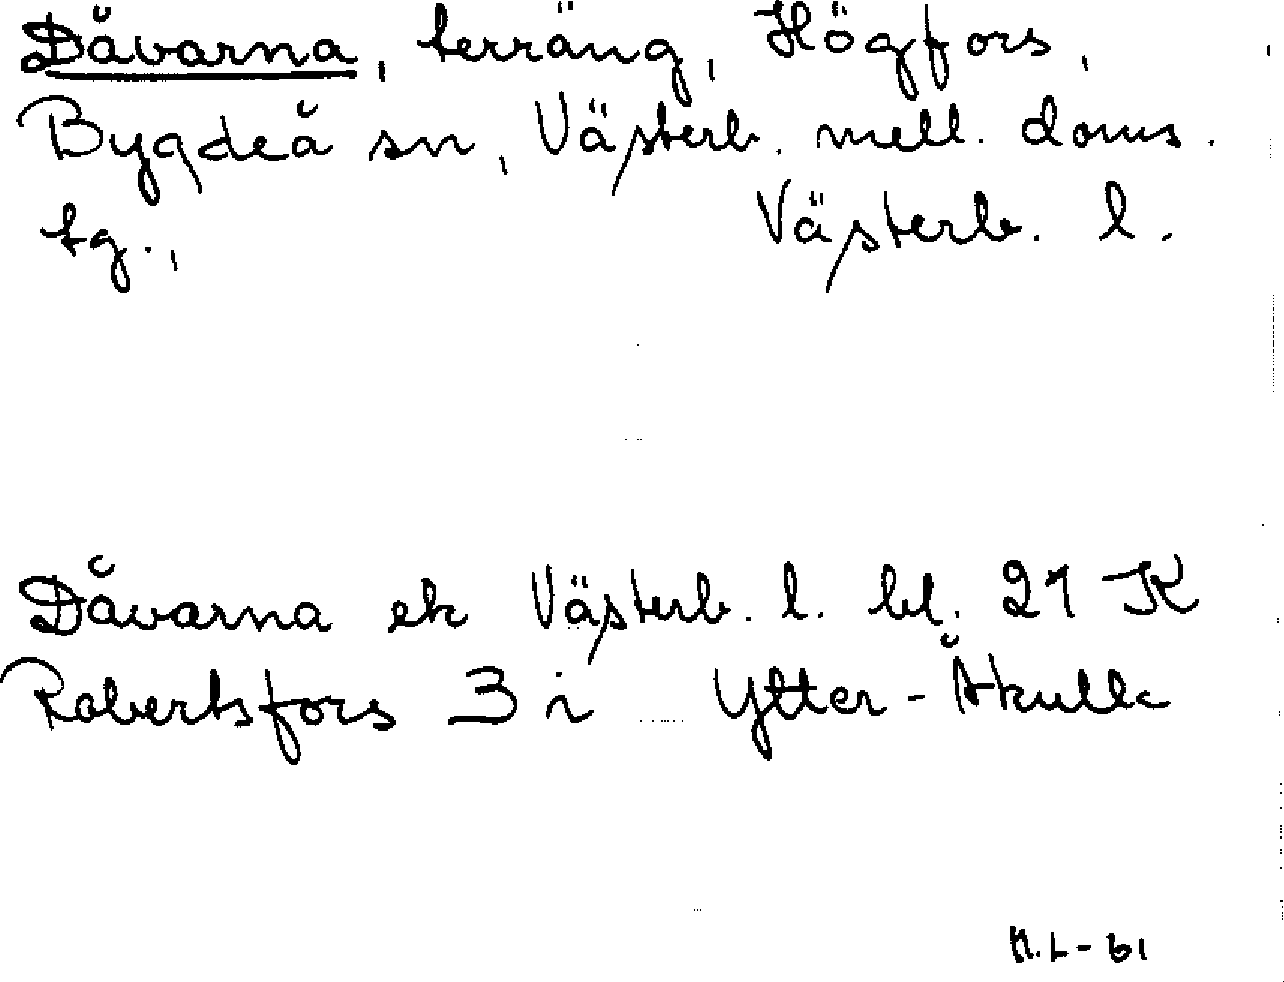 Dåvarna, terräng, Högfors,
Bygdeå sn, Västerb. mell. doms.
tg., Västerb. l.
Dåvarna ek Västerb. l. bl. 21 K
Robertsfors 3 i Ytter-Åkulla
M.L-61